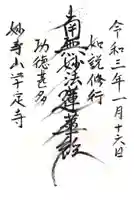 令和三年一月十六日
如説修行
南無妙法蓮華経
功徳甚多
妙寺山平定寺